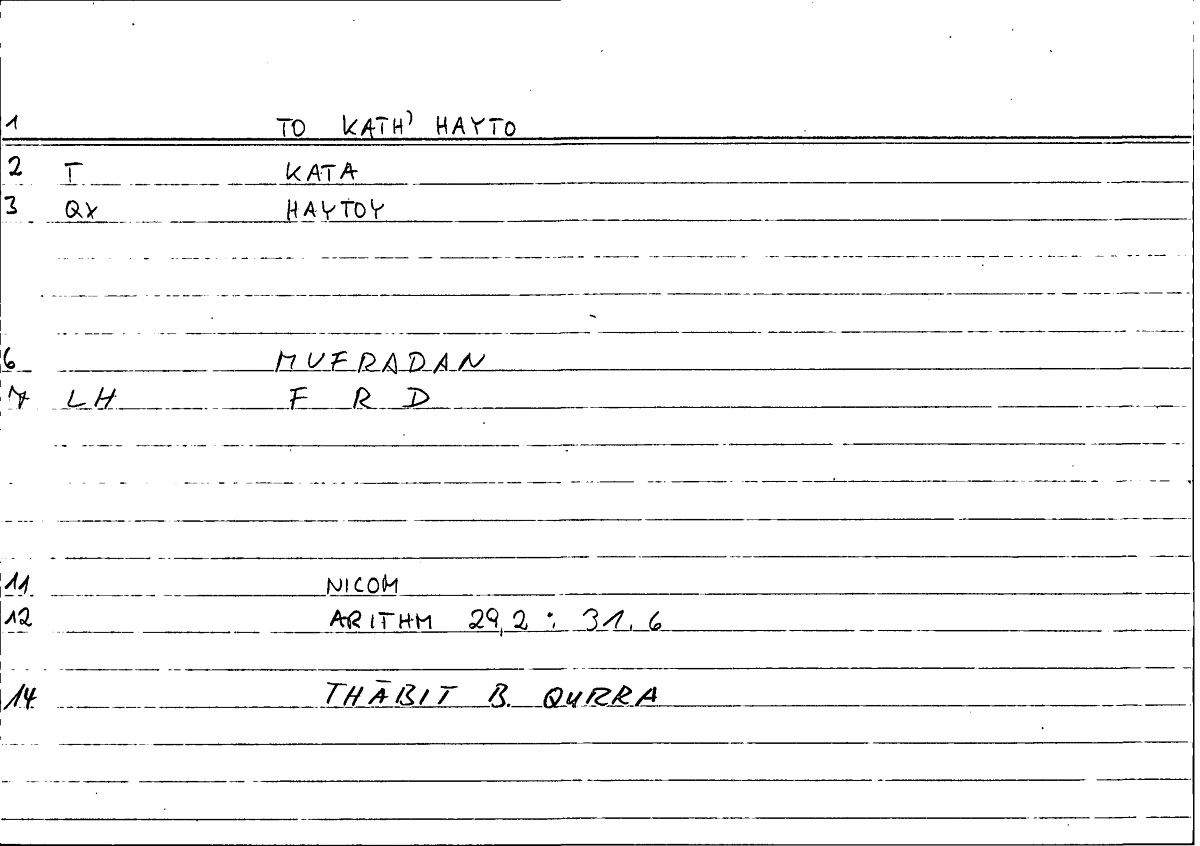 1 TO KATH' HAYTO
2 T KATA
3 QX HAYTOY
6 MUFRADAN
7 LH F R D
11 NICOM
12 ARITHM 29,2 : 31.6
14 THĀBIT B. QURRA